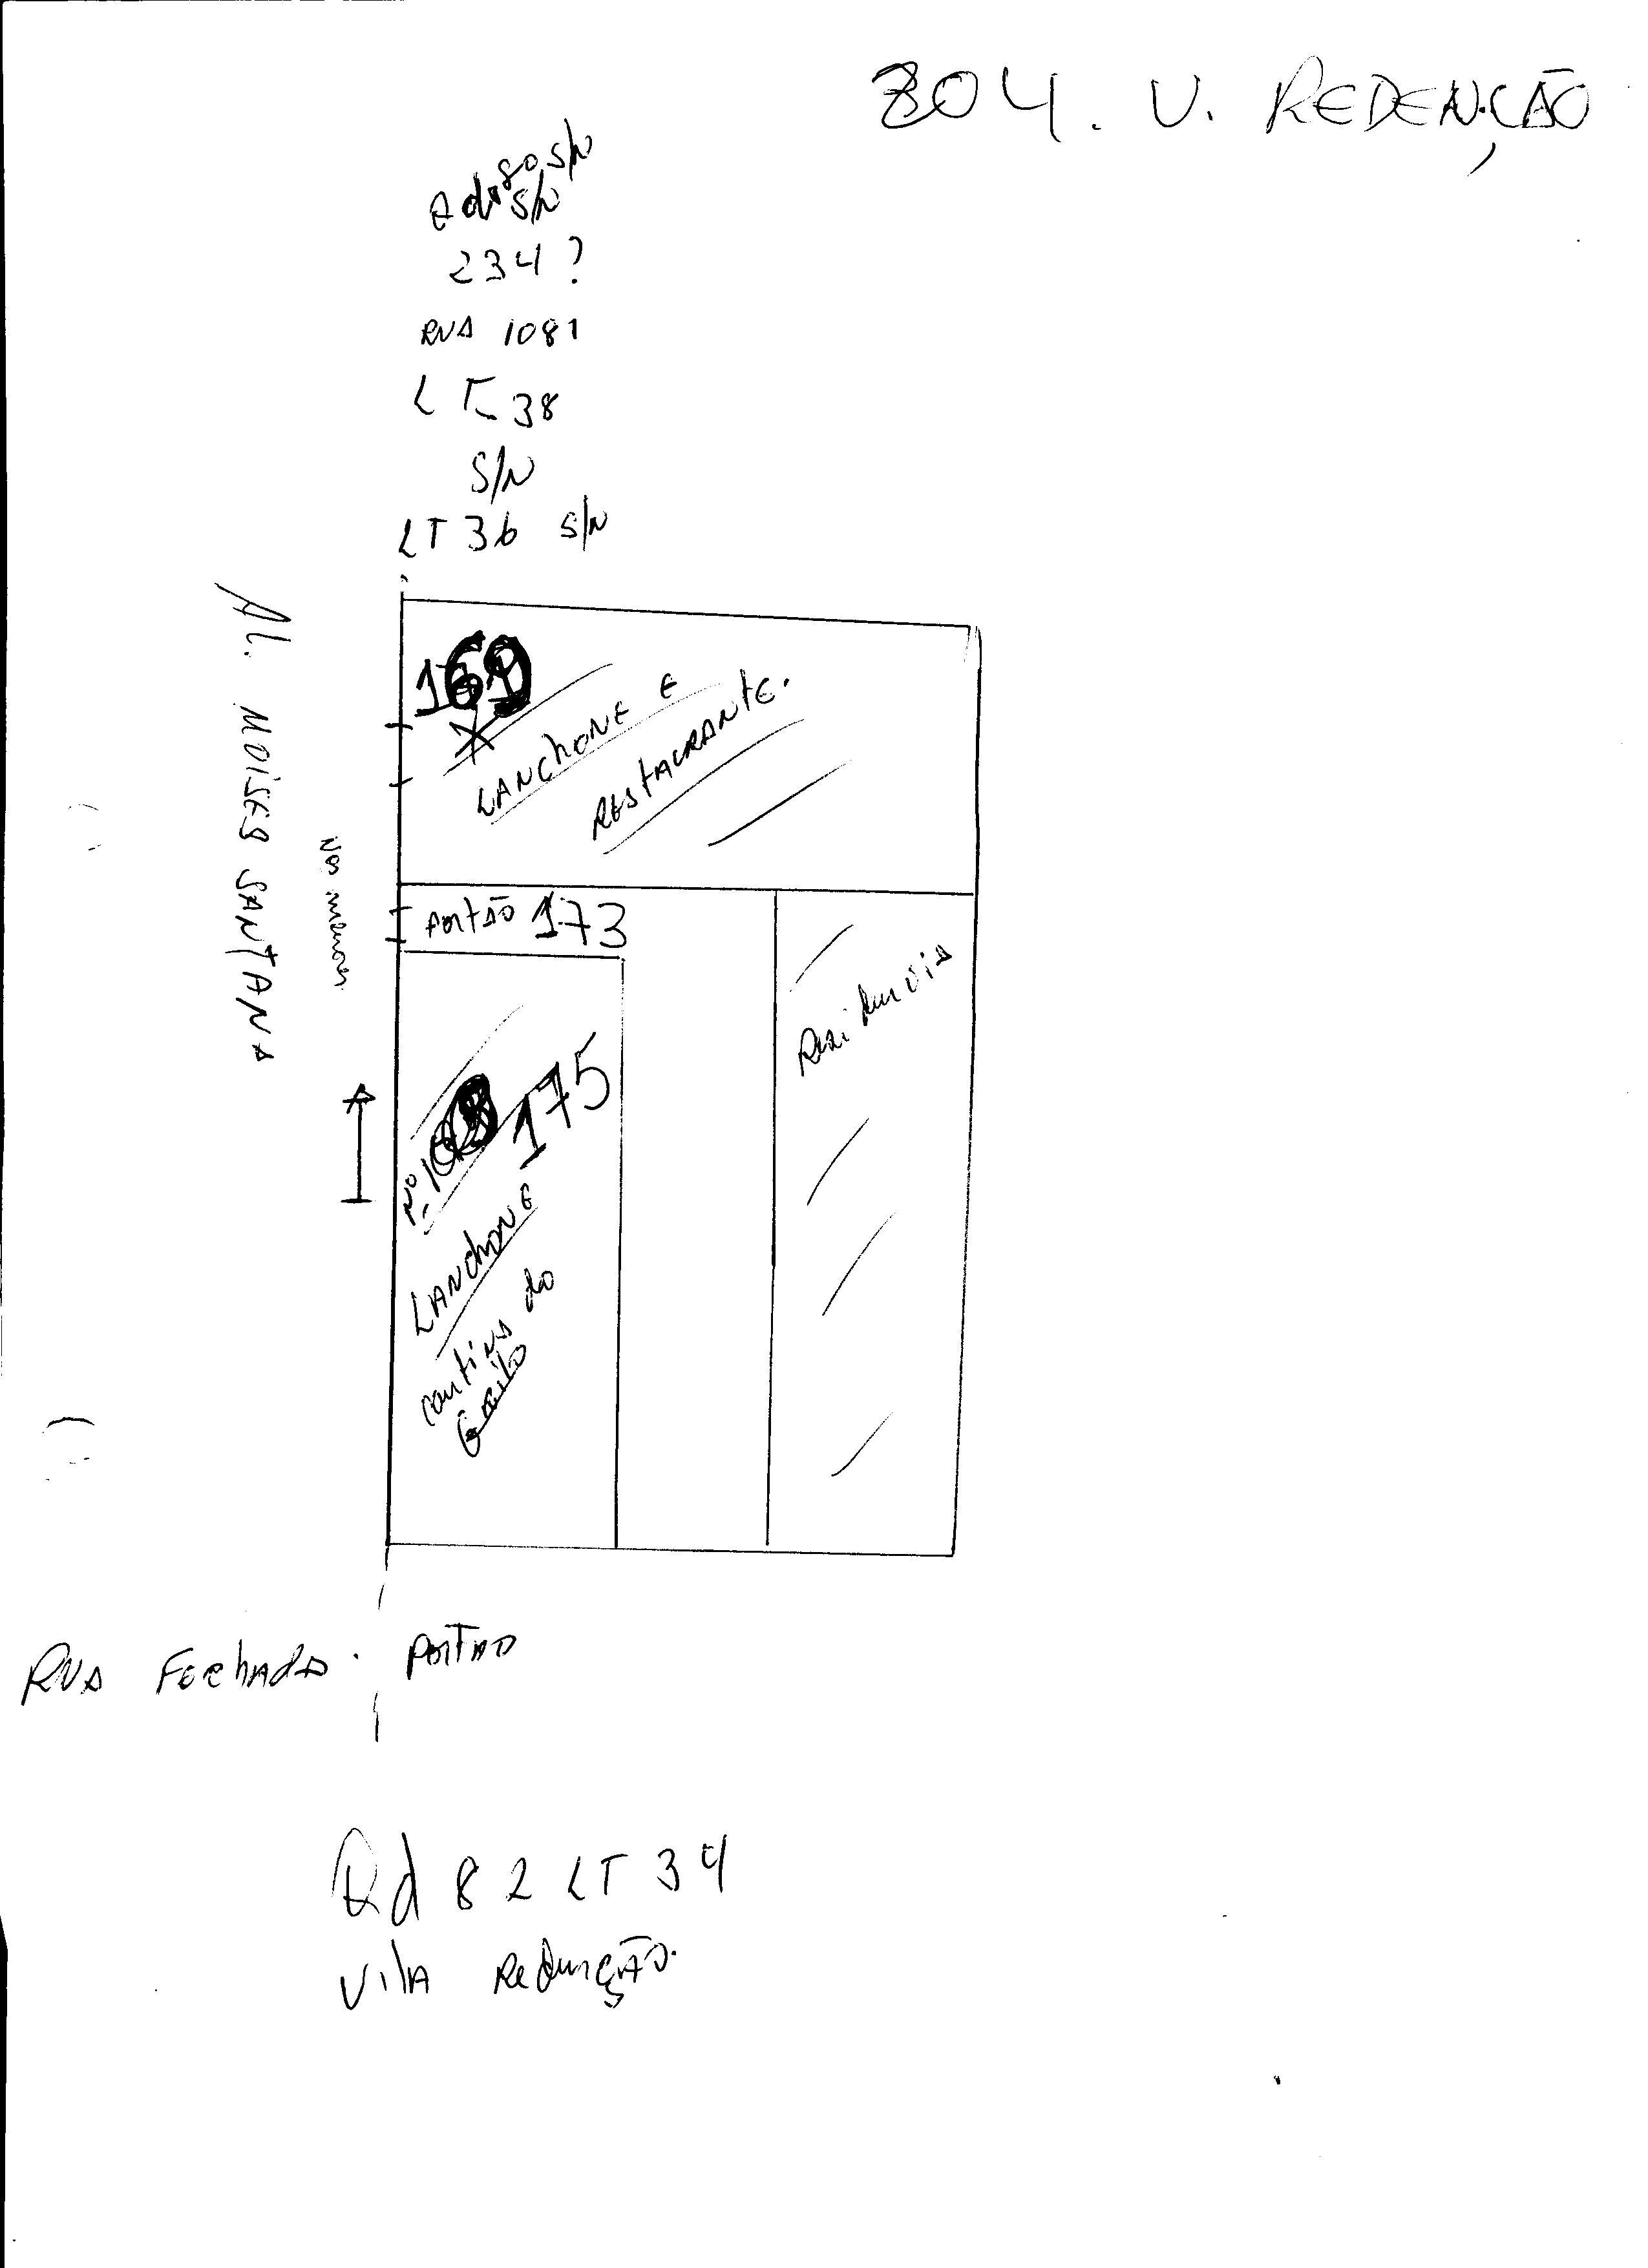 804. V. REDENÇÃO
S/N
S/N
234 ?
RUA 1081
LT 38
S/N
LT 36 S/N
Al. MOISES SANTANA
169
LANCHONE E
RESTAURANTE.
PORTÃO 173
Residencia
Nº
175
LANCHONE
cantina do
RUA Fechada. PORTAO
Qd 82 LT 34
Vila Redenção.